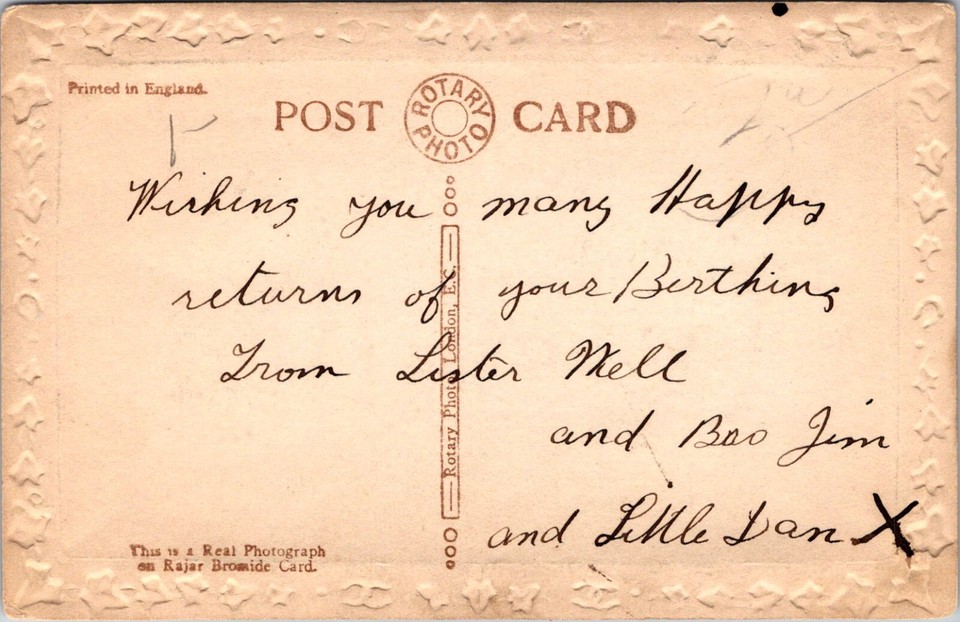 Printed in England.
POST CARD
ROTARY PHOTO
Wishing you many Happy
returns of your Birthing
From Sister Nell
and Bro Jim
and Little Dan X
Rotary Photo, London, E.C.
This is a Real Photograph
on Rajar Bromide Card.